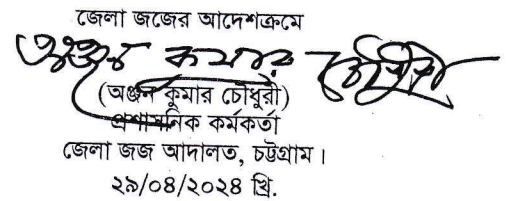 জেলা জজের আদেশক্রমে
অঞ্জন কুমার চৌধুরী
(অঞ্জন কুমার চৌধুরী)
প্রশাসনিক কর্মকর্তা
জেলা জজ আদালত, চট্টগ্রাম।
২৯/০৪/২০২৪ খ্রি.